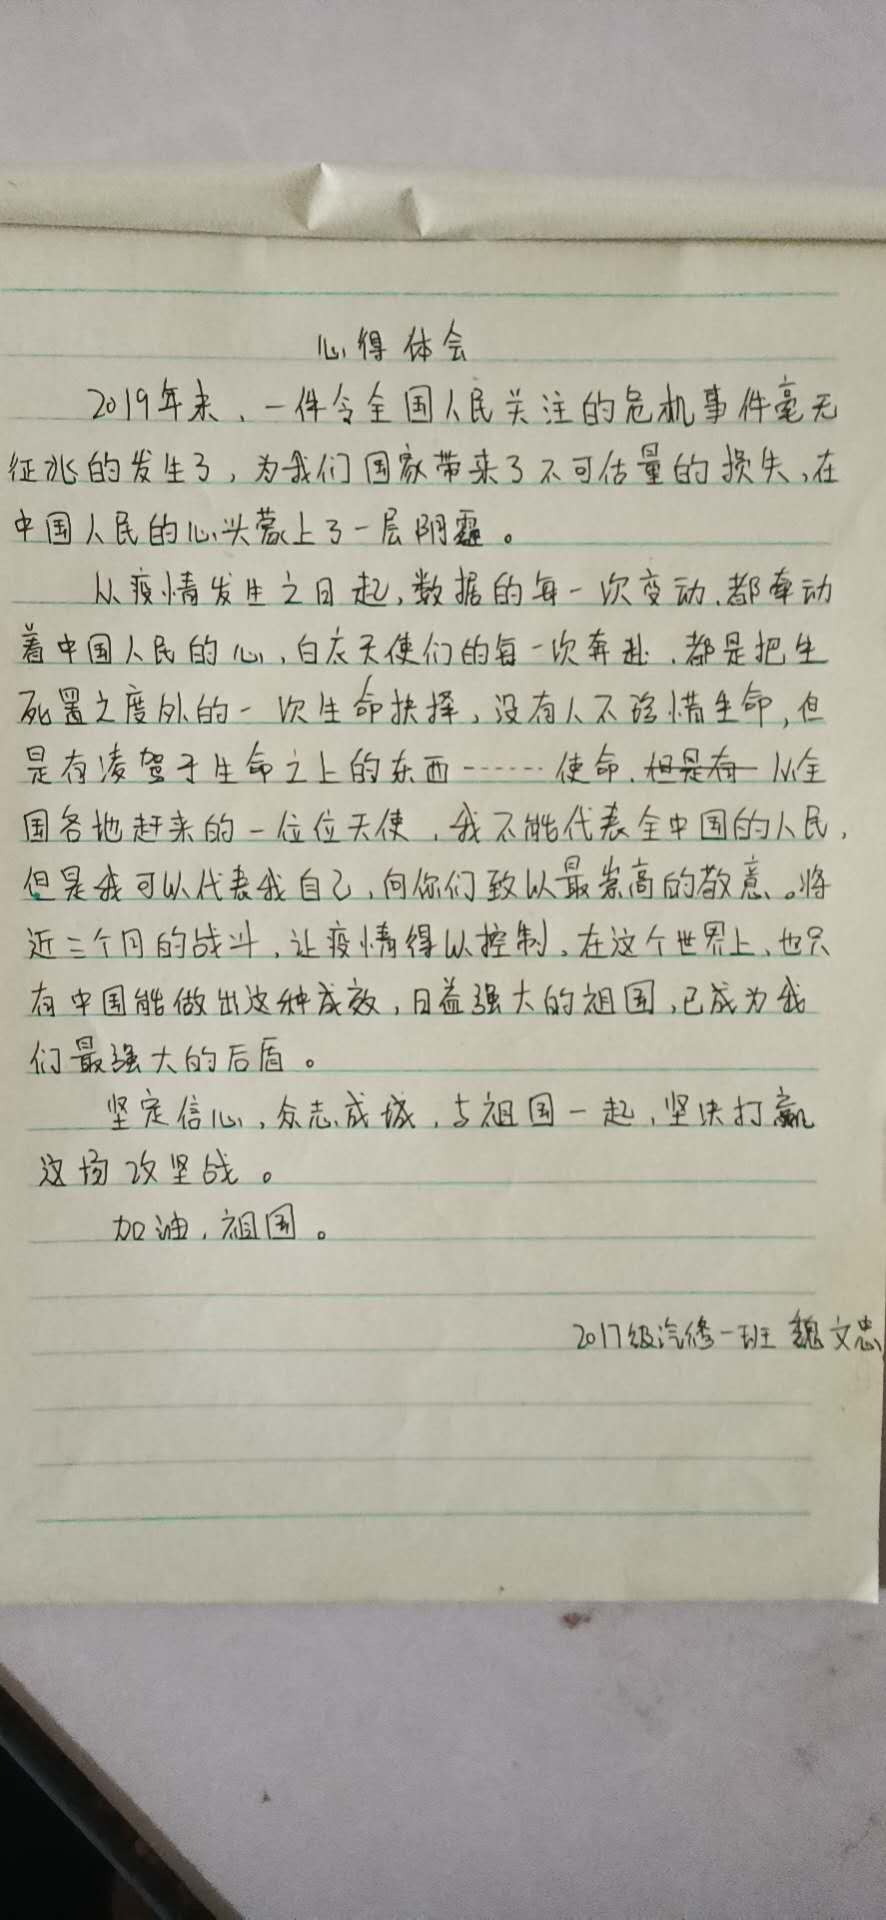 心得体会
2019年末，一件令全国人民关注的危机事件毫无
征兆的发生了，为我们国家带来了不可估量的损失，在
中国人民的心头蒙上了一层阴霾。
从疫情发生之日起，数据的每一次变动，都牵动
着中国人民的心，白衣天使们的每一次奔赴，都是把生
死置之度外的一次生命抉择，没有人不珍惜生命，但
是有凌驾于生命之上的东西……使命，但是有从全
国各地赶来的一位位天使，我不能代表全中国的人民，
但是我可以代表我自己，向你们致以最崇高的敬意。将
近三个月的战斗，让疫情得以控制，在这个世界上，也只
有中国能做出这种成效，日益强大的祖国，已成为我
们最强大的后盾。
坚定信心，众志成城，与祖国一起，坚决打赢
这场攻坚战。
加油，祖国。
2017级汽修一班 魏文忠